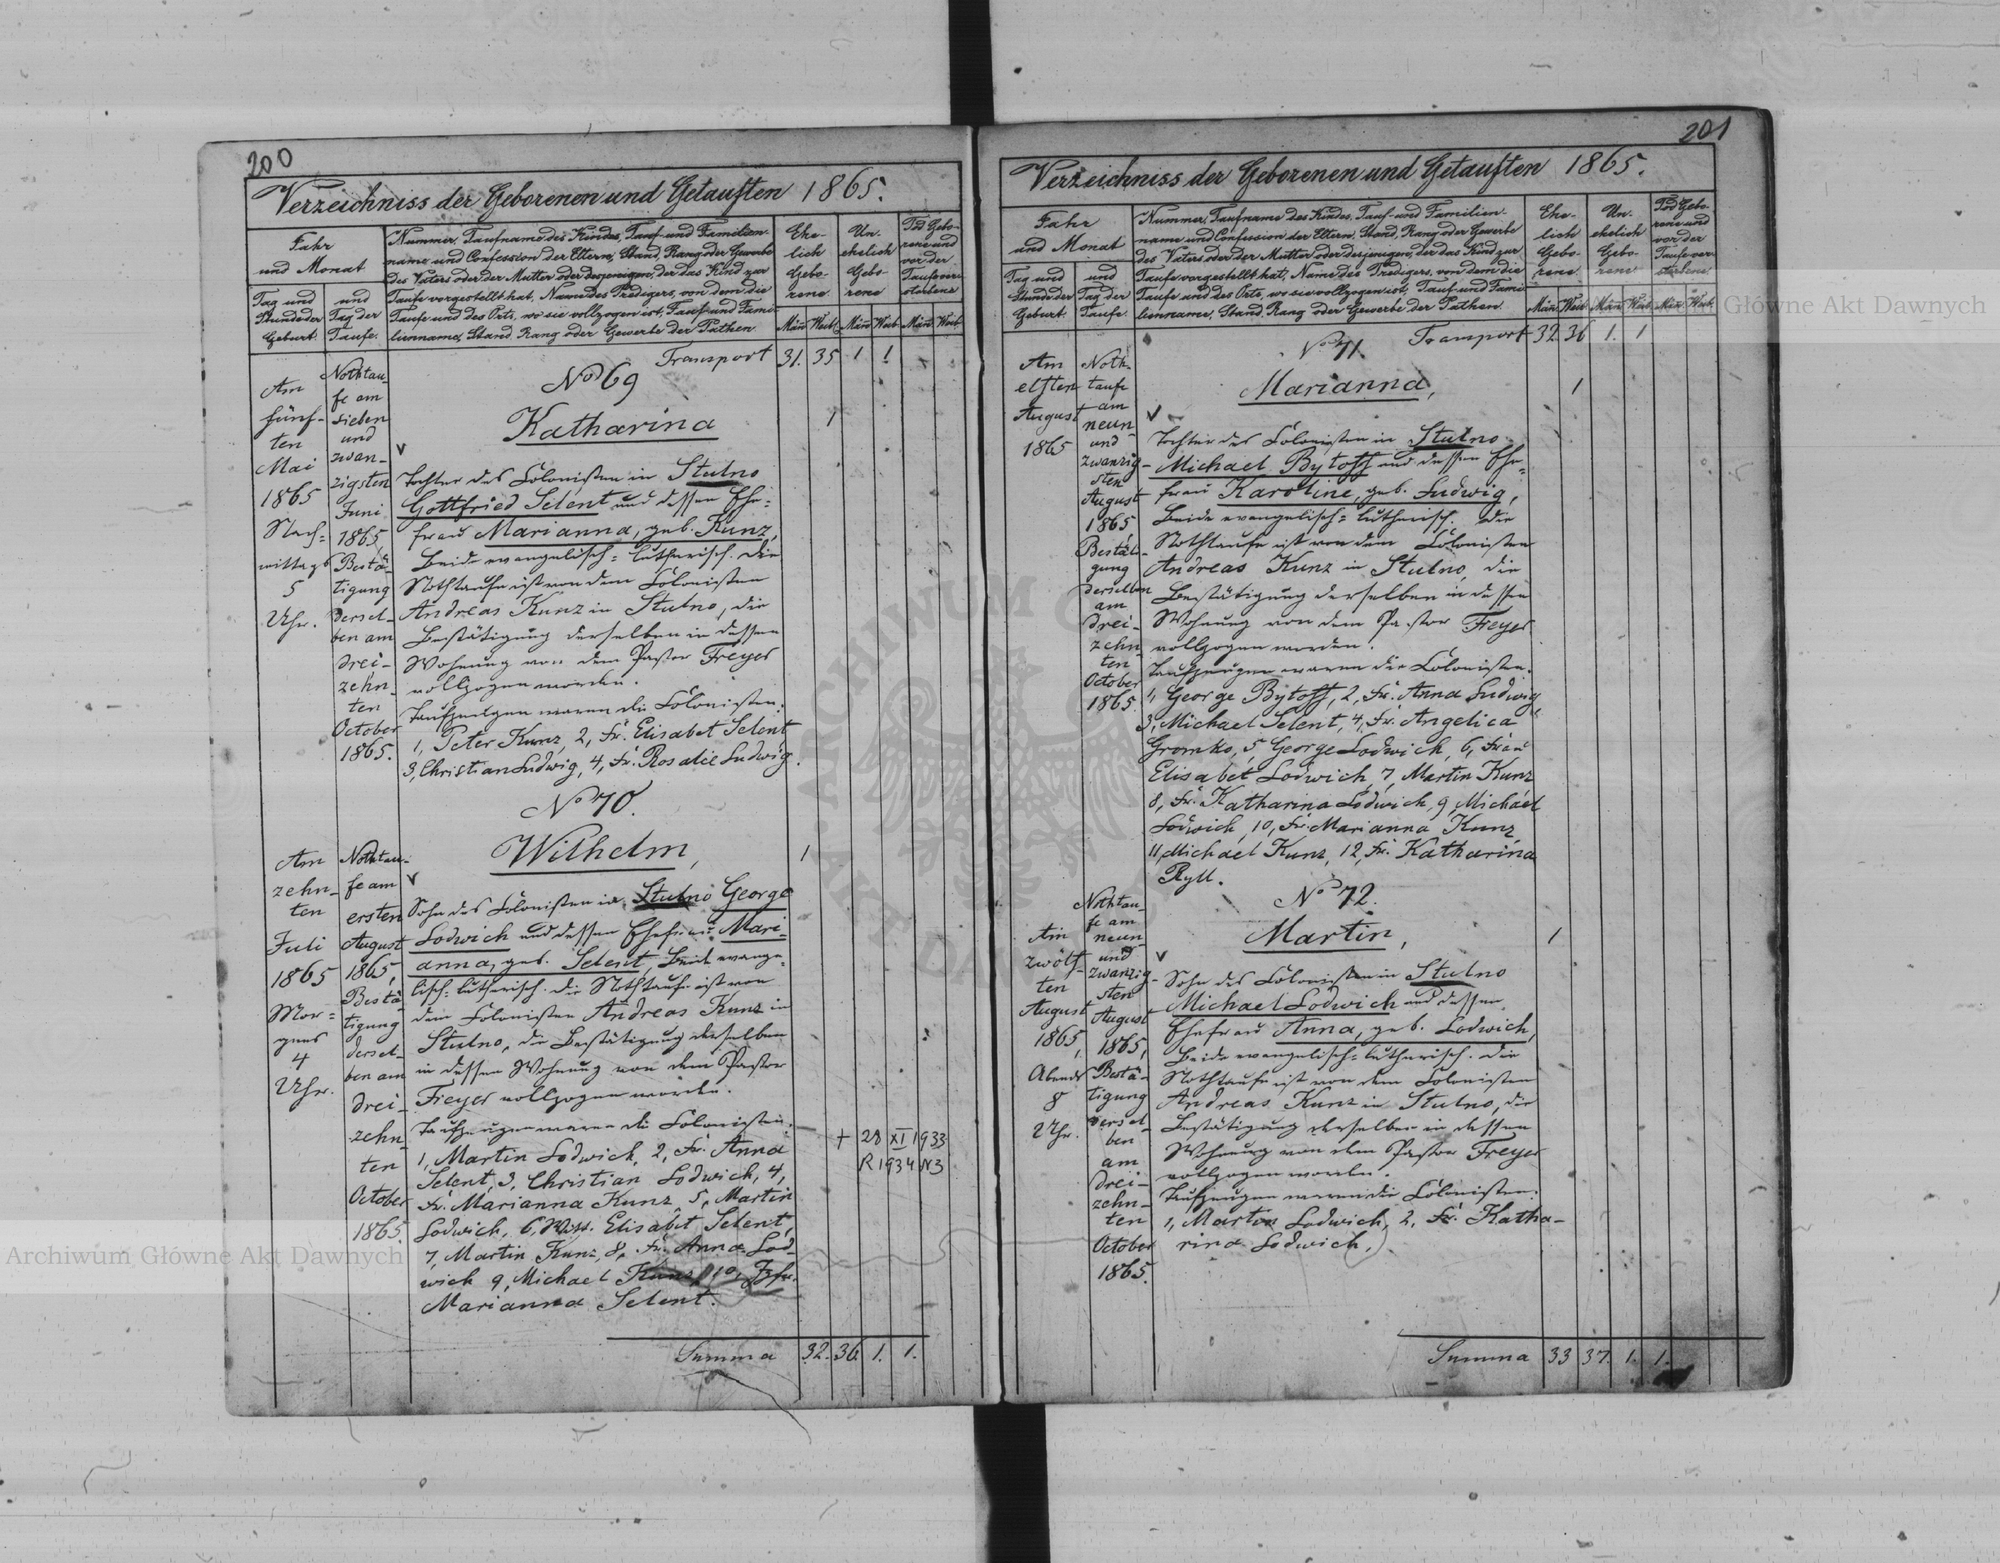 200
Verzeichniss der Geborenen und Getauften 1865.
Jahr
und Monat
Tag und
Stunde der
Geburt.
und
Tag der
Taufe.
Nummer, Taufname des Kindes, Tauf- und Familien-
name und Confession der Eltern, Stand, Rang oder Gewerbe
des Vaters oder der Mutter oder desjenigen, der das Kind zur
Taufe vorgestellt hat, Name des Predigers, von dem die
Taufe und des Orts, wo sie vollzogen ist, Tauf- und Fami-
lienname, Stand, Rang oder Gewerbe der Pathen.
Ehe-
lich
Gebo-
rene
Un-
ehelich
Gebo-
rene
Tod Gebo-
rene und
vor der
Taufe ver-
storbene
Män Weib Män Weib Män Weib
Transport 31. 35 1 1
No 69
Katharina
Am
fünf-
ten
Mai
1865
Nach-
mittags
5
Uhr.
Nothtau-
fe am
sieben
und
zwan-
zigsten
Juni
1865,
Bestä-
tigung
dersel-
ben am
drei-
zehn-
ten
October
1865.
1
Tochter des Colonisten in Stulno
Gottfried Selent und dessen Ehe-
frau Marianna, geb. Kunz,
Beide evangelisch-lutherisch. Die
Nothtaufe ist von dem Colonisten
Andreas Kunz in Stulno, die
Bestätigung derselben in dessen
Wohnung von dem Pastor Freyer
vollzogen worden.
Taufzeugen waren die Colonisten:
1, Peter Kunz, 2, Fr. Elisabet Selent
3, Christian Ludwig, 4, Fr. Rosalie Ludwig.
No 70.
Wilhelm,
Am
zehn-
ten
Juli
1865
Mor-
gens
4
Uhr.
Nothtau-
fe am
ersten
August
1865,
Bestä-
tigung
dersel-
ben am
drei-
zehn-
ten
October
1865.
1
Sohn des Colonisten in Stulno George
Lodwich und dessen Ehefrau Mari-
anna, geb. Selent, Beide evange-
lisch-lutherisch. Die Nothtaufe ist von
dem Colonisten Andreas Kunz in
Stulno, die Bestätigung derselben
in dessen Wohnung von dem Pastor
Freyer vollzogen worden.
Taufzeugen waren die Colonisten:
1, Martin Lodwich, 2, Fr. Anna
Selent, 3, Christian Lodwich, 4,
Fr. Marianna Kunz, 5, Martin
Lodwich, 6, Wittw. Elisabet Selent,
7, Martin Kunz, 8, Fr. Anna Lod-
wich 9, Michael Kunz, 10, Jgfr.
Marianna Selent.
+ 28 XI 1933
R 1934 N3
Summa 32. 36 1. 1.
201
Verzeichniss der Geborenen und Getauften 1865.
Jahr
und Monat
Tag und
Stunde der
Geburt.
und
Tag der
Taufe.
Nummer, Taufname des Kindes, Tauf- und Familien-
name und Confession der Eltern, Stand, Rang oder Gewerbe
des Vaters oder der Mutter oder desjenigen, der das Kind zur
Taufe vorgestellt hat, Name des Predigers, von dem die
Taufe und des Orts, wo sie vollzogen ist, Tauf- und Fami-
lienname, Stand, Rang oder Gewerbe der Pathen.
Ehe-
lich
Gebo-
rene
Un-
ehelich
Gebo-
rene
Tod Gebo-
rene und
vor der
Taufe ver-
storbene
Män Weib Män Weib Män Weib
Transport 32 36 1. 1
No 71.
Marianna,
Am
elften
August
1865
Noth-
taufe
am
neun
und
zwanzig-
sten
August
1865
Bestäti-
gung
derselben
am
drei-
zehn-
ten
October
1865.
1
Tochter des Colonisten in Stulno
Michael Bytoff und dessen Ehe-
frau Karoline, geb. Ludwig,
Beide evangelisch-lutherisch. Die
Nothtaufe ist von dem Colonisten
Andreas Kunz in Stulno, die
Bestätigung derselben in dessen
Wohnung von dem Pastor Freyer
vollzogen worden.
Taufzeugen waren die Colonisten:
1, George Bytoff, 2, Fr. Anna Ludwig
3, Michael Selent, 4, Fr. Angelica
Gromko, 5, George Lodwich, 6, Frau
Elisabet Lodwich, 7, Martin Kunz
8, Fr. Katharina Lodwich, 9, Michael
Lodwich, 10, Fr. Marianna Kunz,
11, Michael Kunz, 12, Fr. Katharina
Ryll.
No 72.
Martin,
Am
zwölf-
ten
August
1865,
Abends
8
Uhr.
Nothtau-
fe am
neun-
und
zwanzig-
sten
August
1865,
Bestä-
tigung
dersel-
ben
am
drei-
zehn-
ten
October
1865.
1
Sohn des Colonisten in Stulno
Michael Lodwich und dessen
Ehefrau Anna, geb. Lodwich,
Beide evangelisch-lutherisch. Die
Nothtaufe ist von dem Colonisten
Andreas Kunz in Stulno, die
Bestätigung derselben in dessen
Wohnung von dem Pastor Freyer
vollzogen worden.
Taufzeugen waren die Colonisten:
1, Martin Lodwich, 2, Fr. Katha-
rina Lodwich.
Summa 33 37. 1. 1.
Główne Akt Dawnych
Archiwum Główne Akt Dawnych